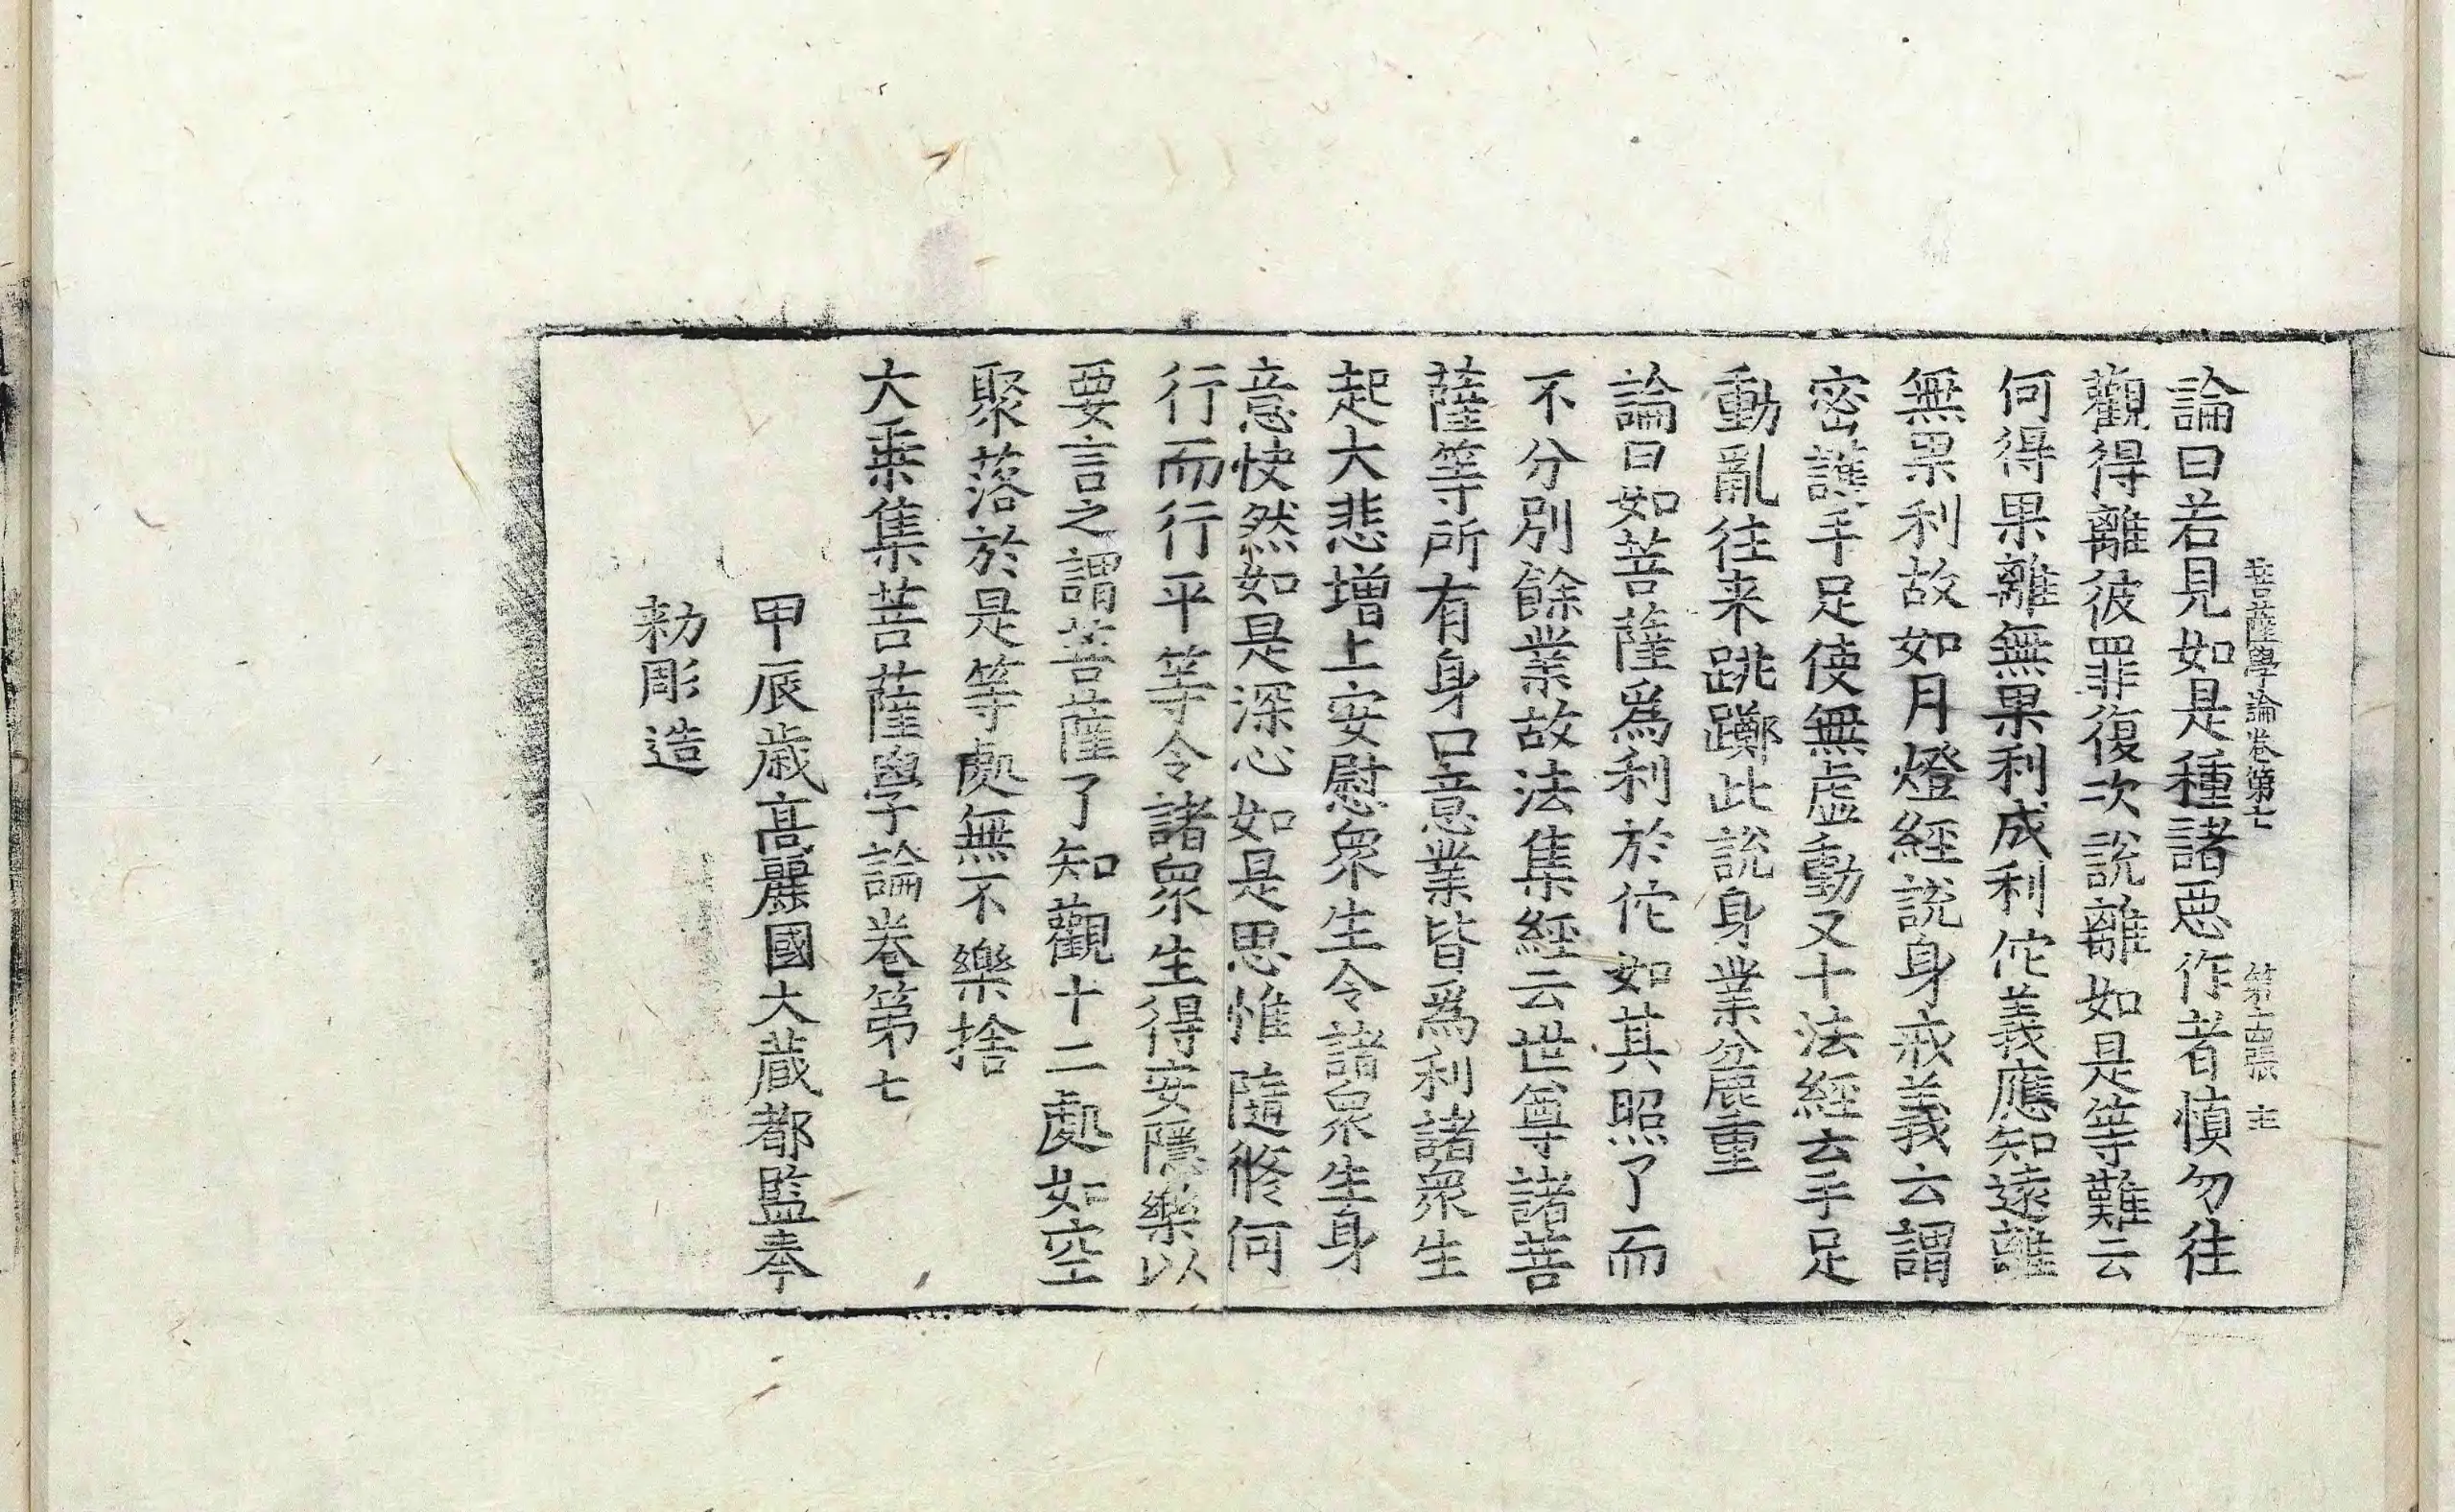 菩薩學論卷第七　第十四張　主
論曰若見如是種諸惡作者慎勿往
觀得離彼罪復次說離如是等難云
何得果離無果利成利佗義應知遠離
無果利故如月燈經說身戒義云謂
密護手足使無虛動又十法經云手足
動亂往来跳躑此說身業麁重
論曰如菩薩爲利於佗如其照了而
不分別餘業故法集經云世尊諸菩
薩等所有身口意業皆爲利諸衆生
起大悲增上安慰衆生令諸衆生身
意快然如是深心如是思惟隨修何
行而行平等令諸衆生得安隱樂以
要言之謂菩薩了知觀十二處如空
聚落於是等處無不樂捨
大乗集菩薩學論卷第七
甲辰歲高麗國大藏都監奉
勑彫造